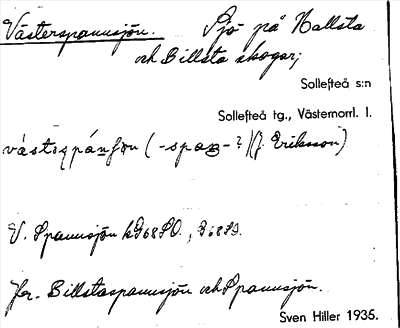 Västerspannsjön. Sjö på Hallsta
och Billsta skogar;
Sollefteå s:n
Sollefteå tg., Västernorrl. l.
(J. Eriksson)
V. Spannsjön
Jfr. Billstaspannsjön och Spannsjön.
Sven Hiller 1935.